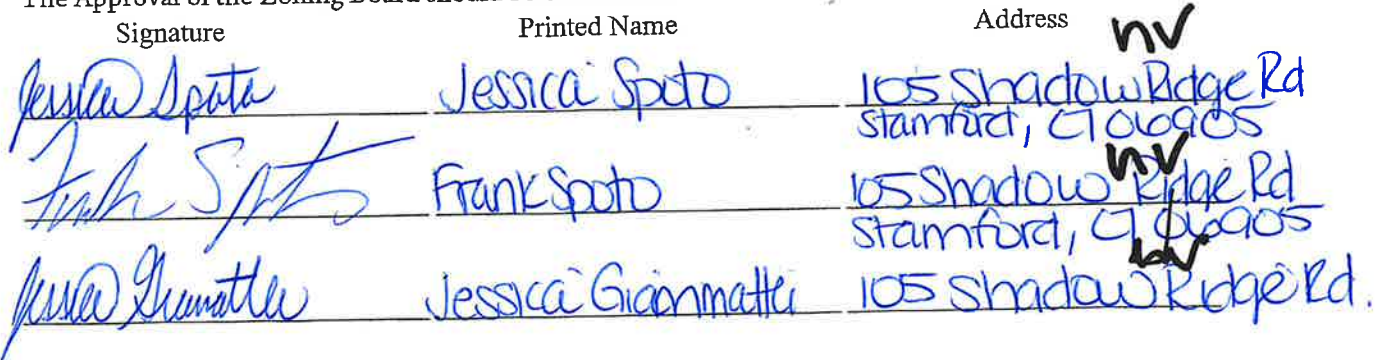 The Approval of the Zoning Board should
Signature Printed Name Address
nv
Jessica Spoto Jessica Spoto 105 Shadow Ridge Rd
Stamford, CT 06905
nv
Frank Spoto Frank Spoto 105 Shadow Ridge Rd
Stamford, CT 06905
Jessica Giammattei Jessica Giammattei 105 Shadow Ridge Rd.